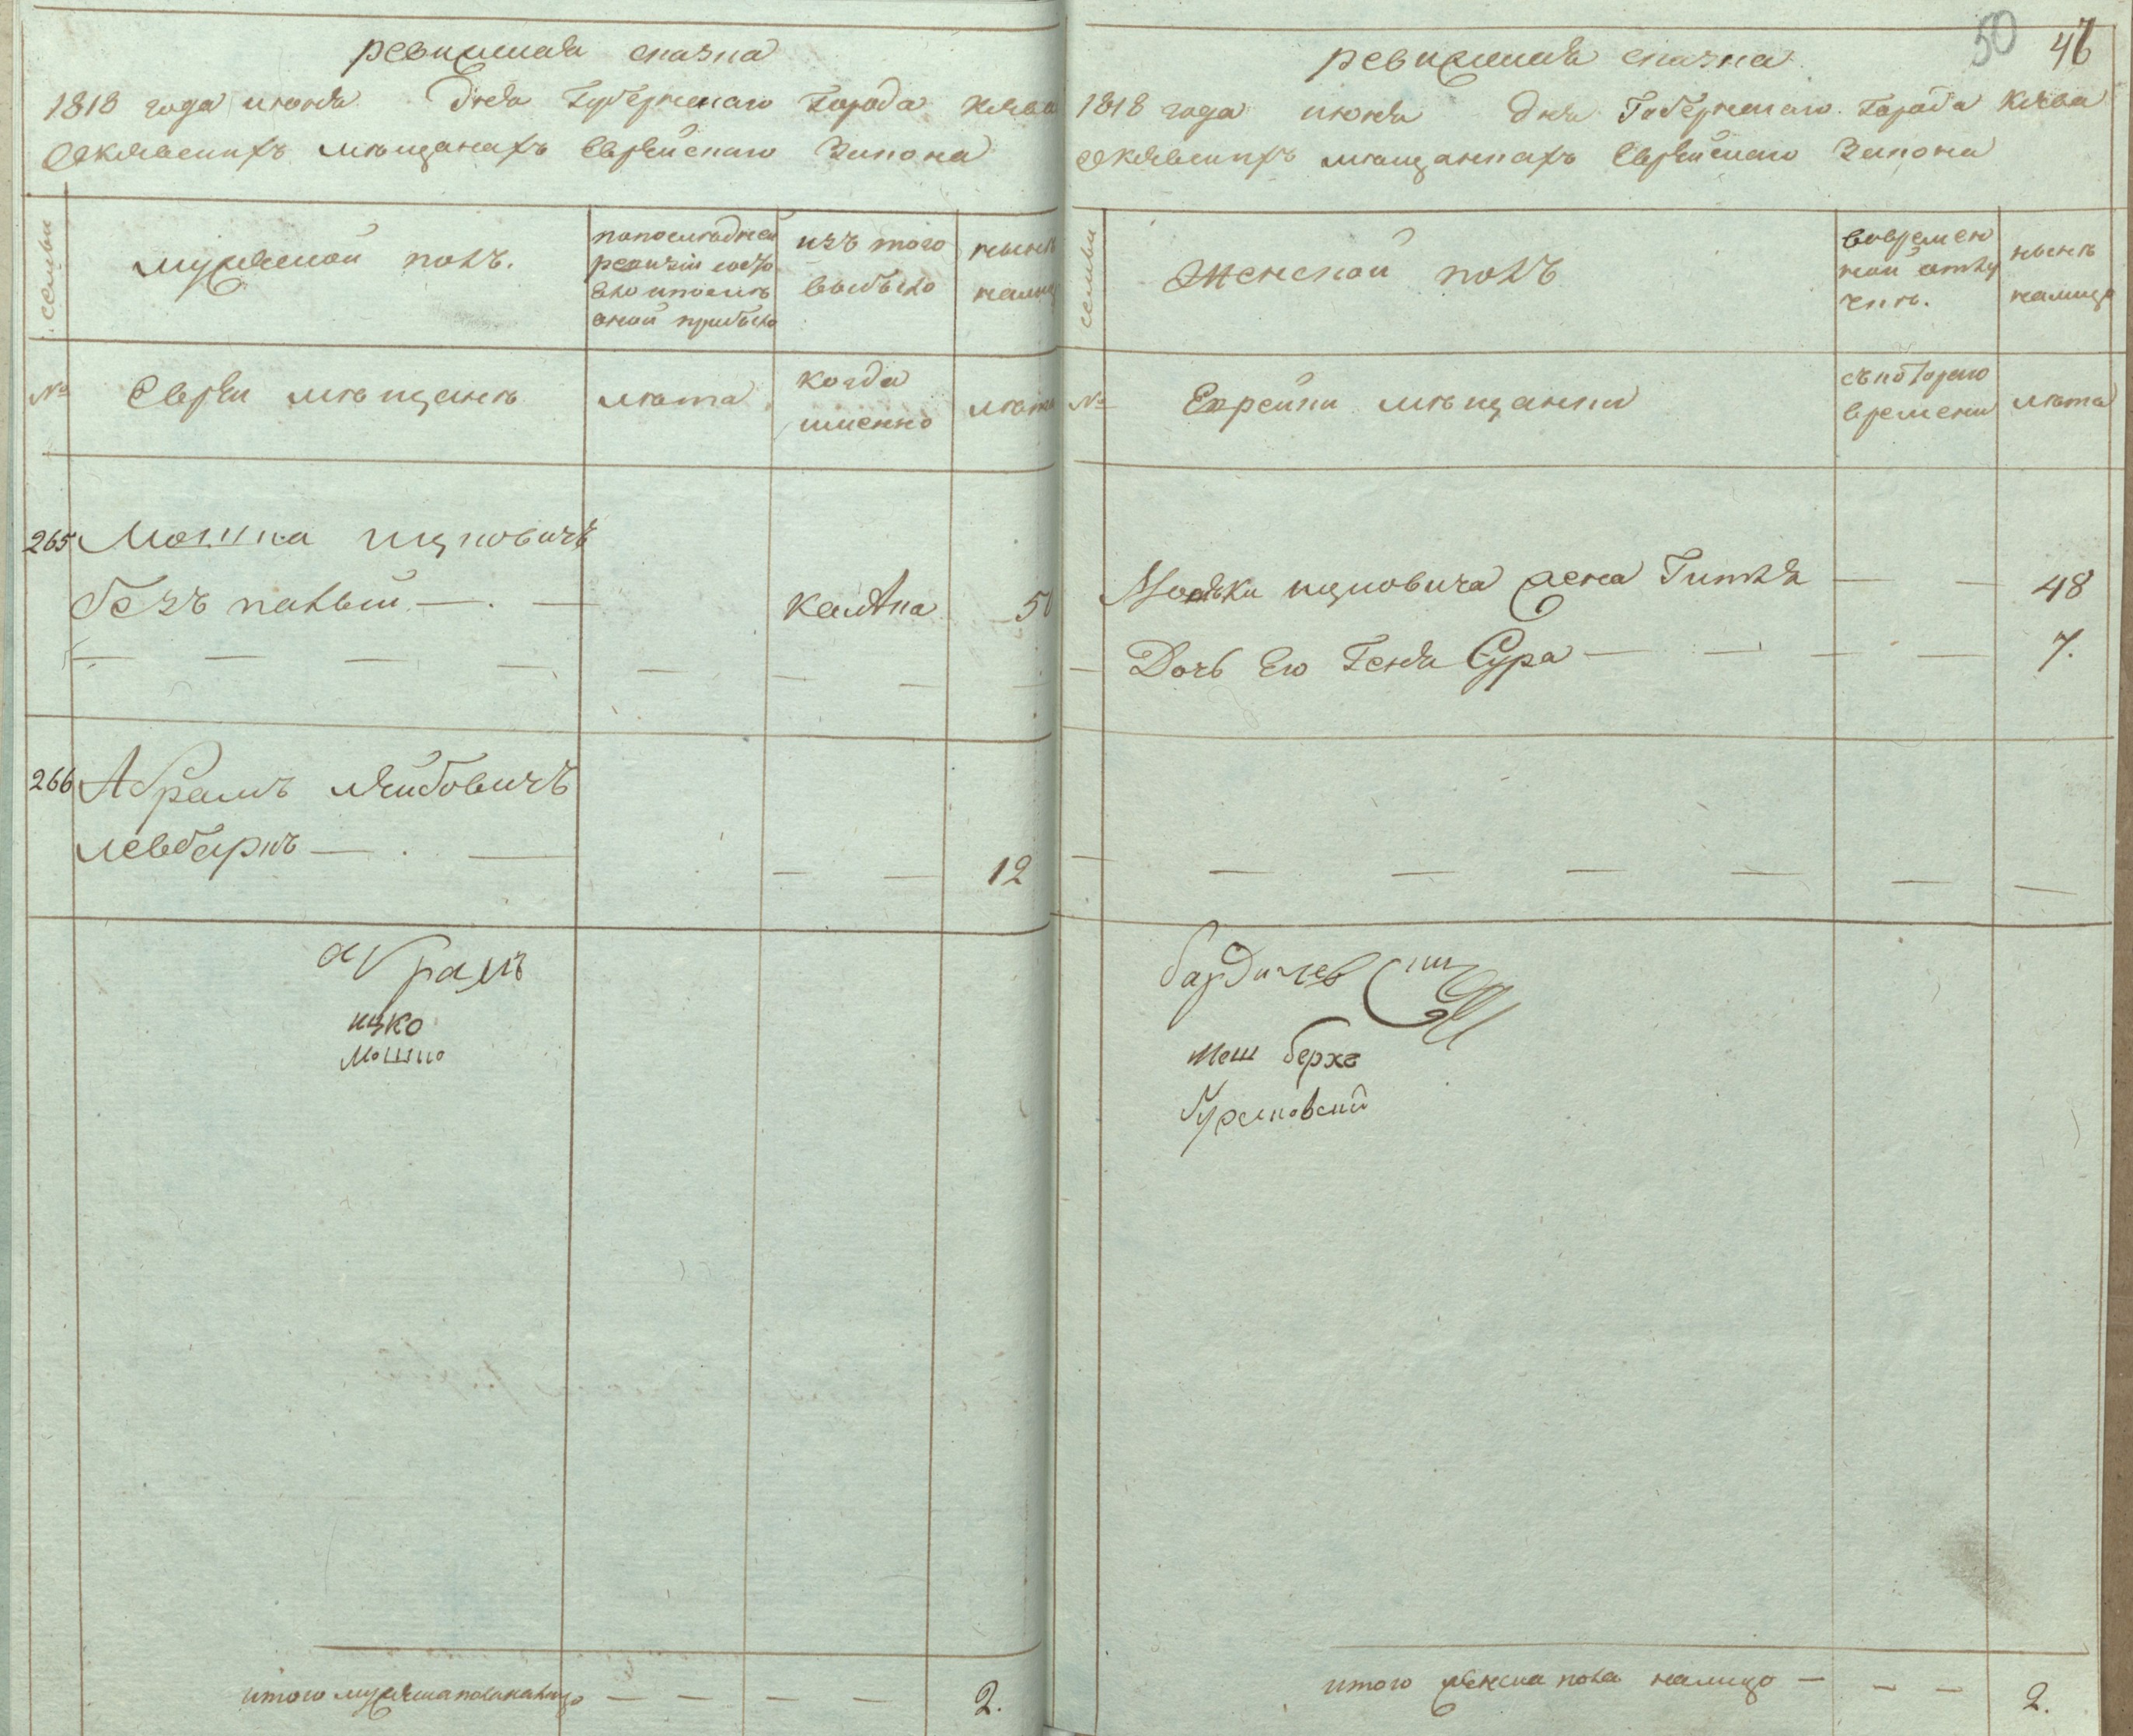 ревизская сказка
1818 года июня дня Губернскаго Города Киева
О Киевских мѣщанах Еврейскаго Закона
семьи
мужеской полъ.
по последней ревизіи состояло и после оной прибыло
изъ того выбыло
ныне налицо
№
Евреи мѣщане
лѣта
когда именно
лѣта
265 Мошка ицковичъ
50
266 Абрамъ лейбовичъ
12
абрамъ
ицко
Мошко
итого мужеска пола налицо — — — — 2.
50 46
ревизская сказка
1818 года июня дня Губернскаго Города Киева
О Киевскихъ мѣщанкахъ Еврейскаго Закона
семьи
Женской полъ
во временной отлучке.
ныне налицо
№
Еврейки мѣщанки
съ котораго времени
лѣта
Мошки ицковича жена Гитля — — 48
Дочь Его Геня Сура — — — — 7.
бардичев
меш берхе
итого женска пола налицо — — — 2.